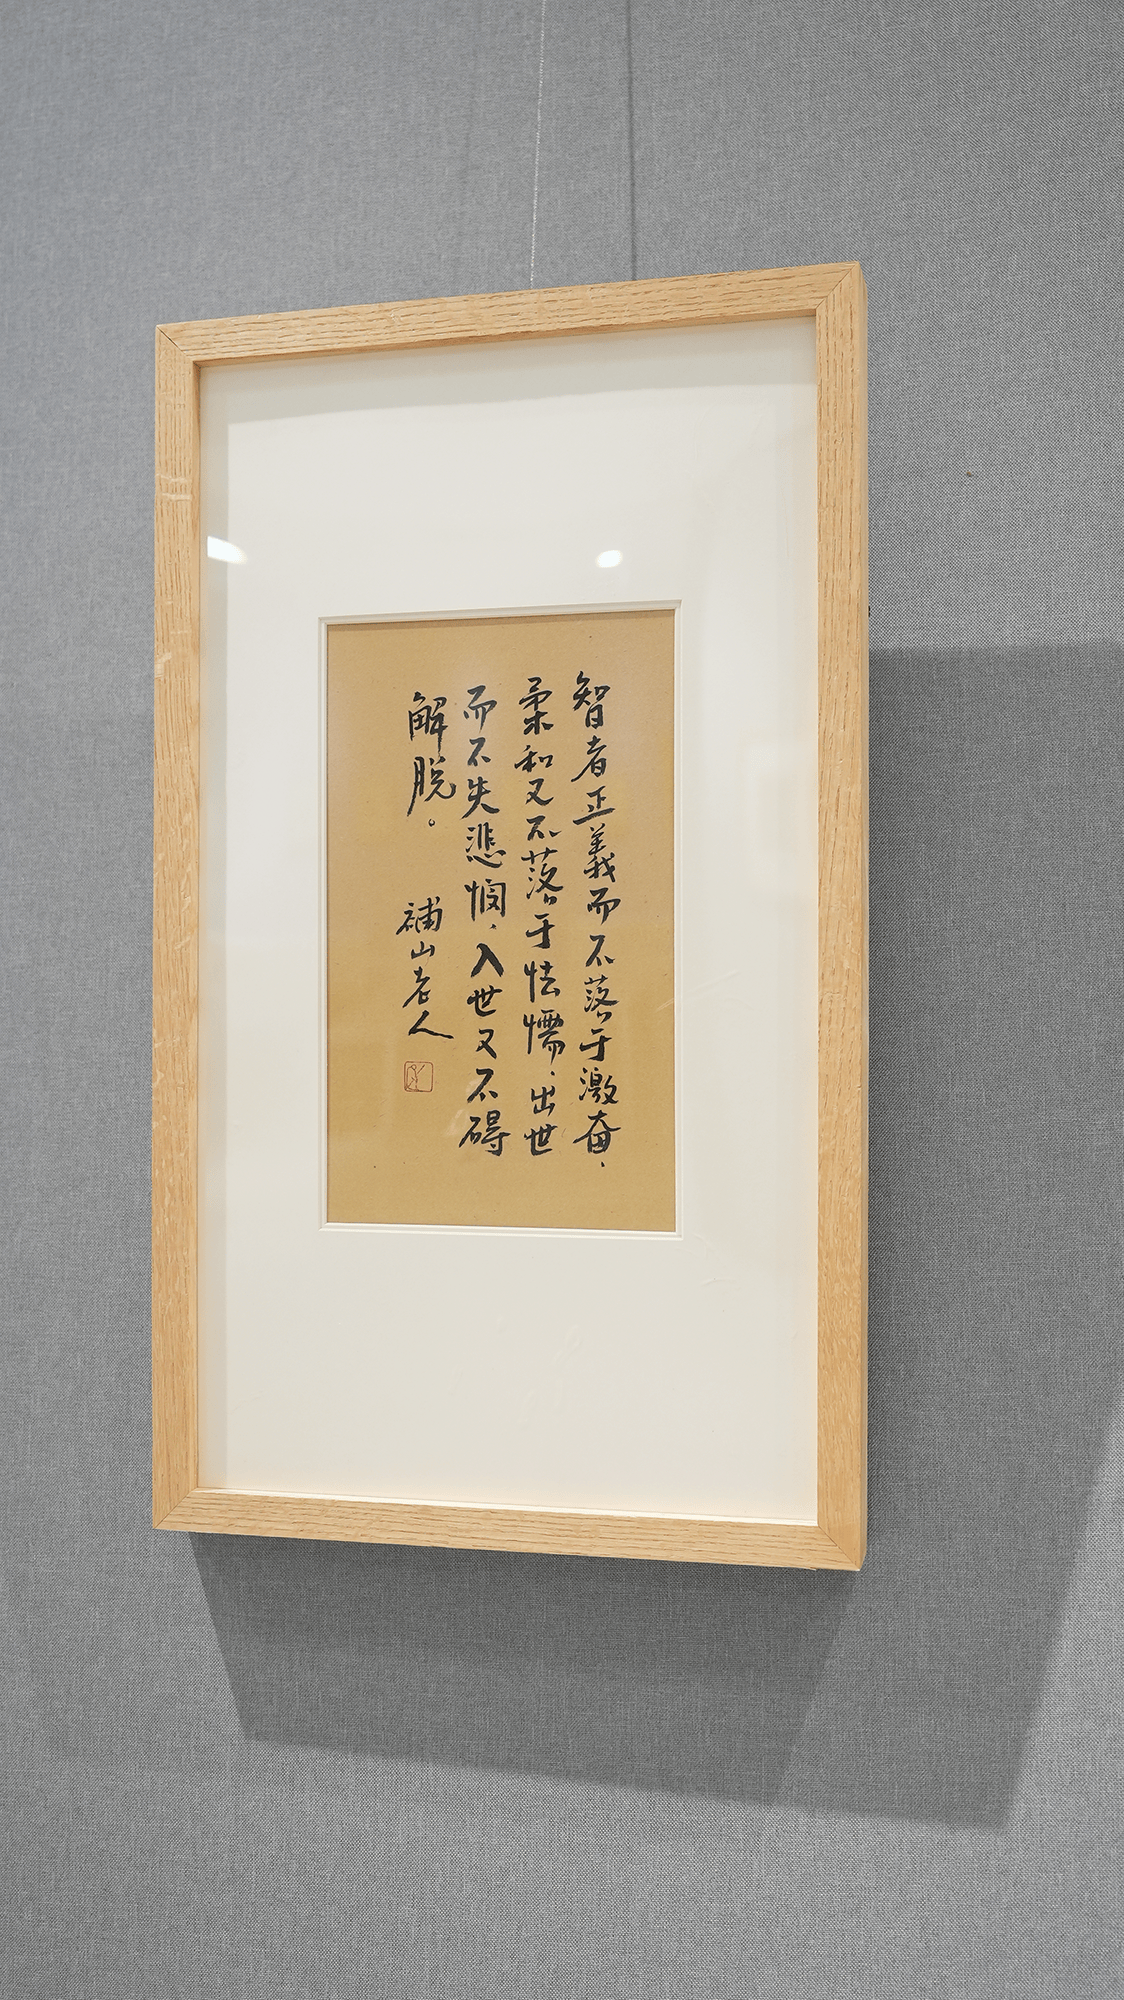 智者正義而不落于激奋、
柔和又不落于怯懦、出世
而不失悲悯、入世又不碍
解脱。
補山老人